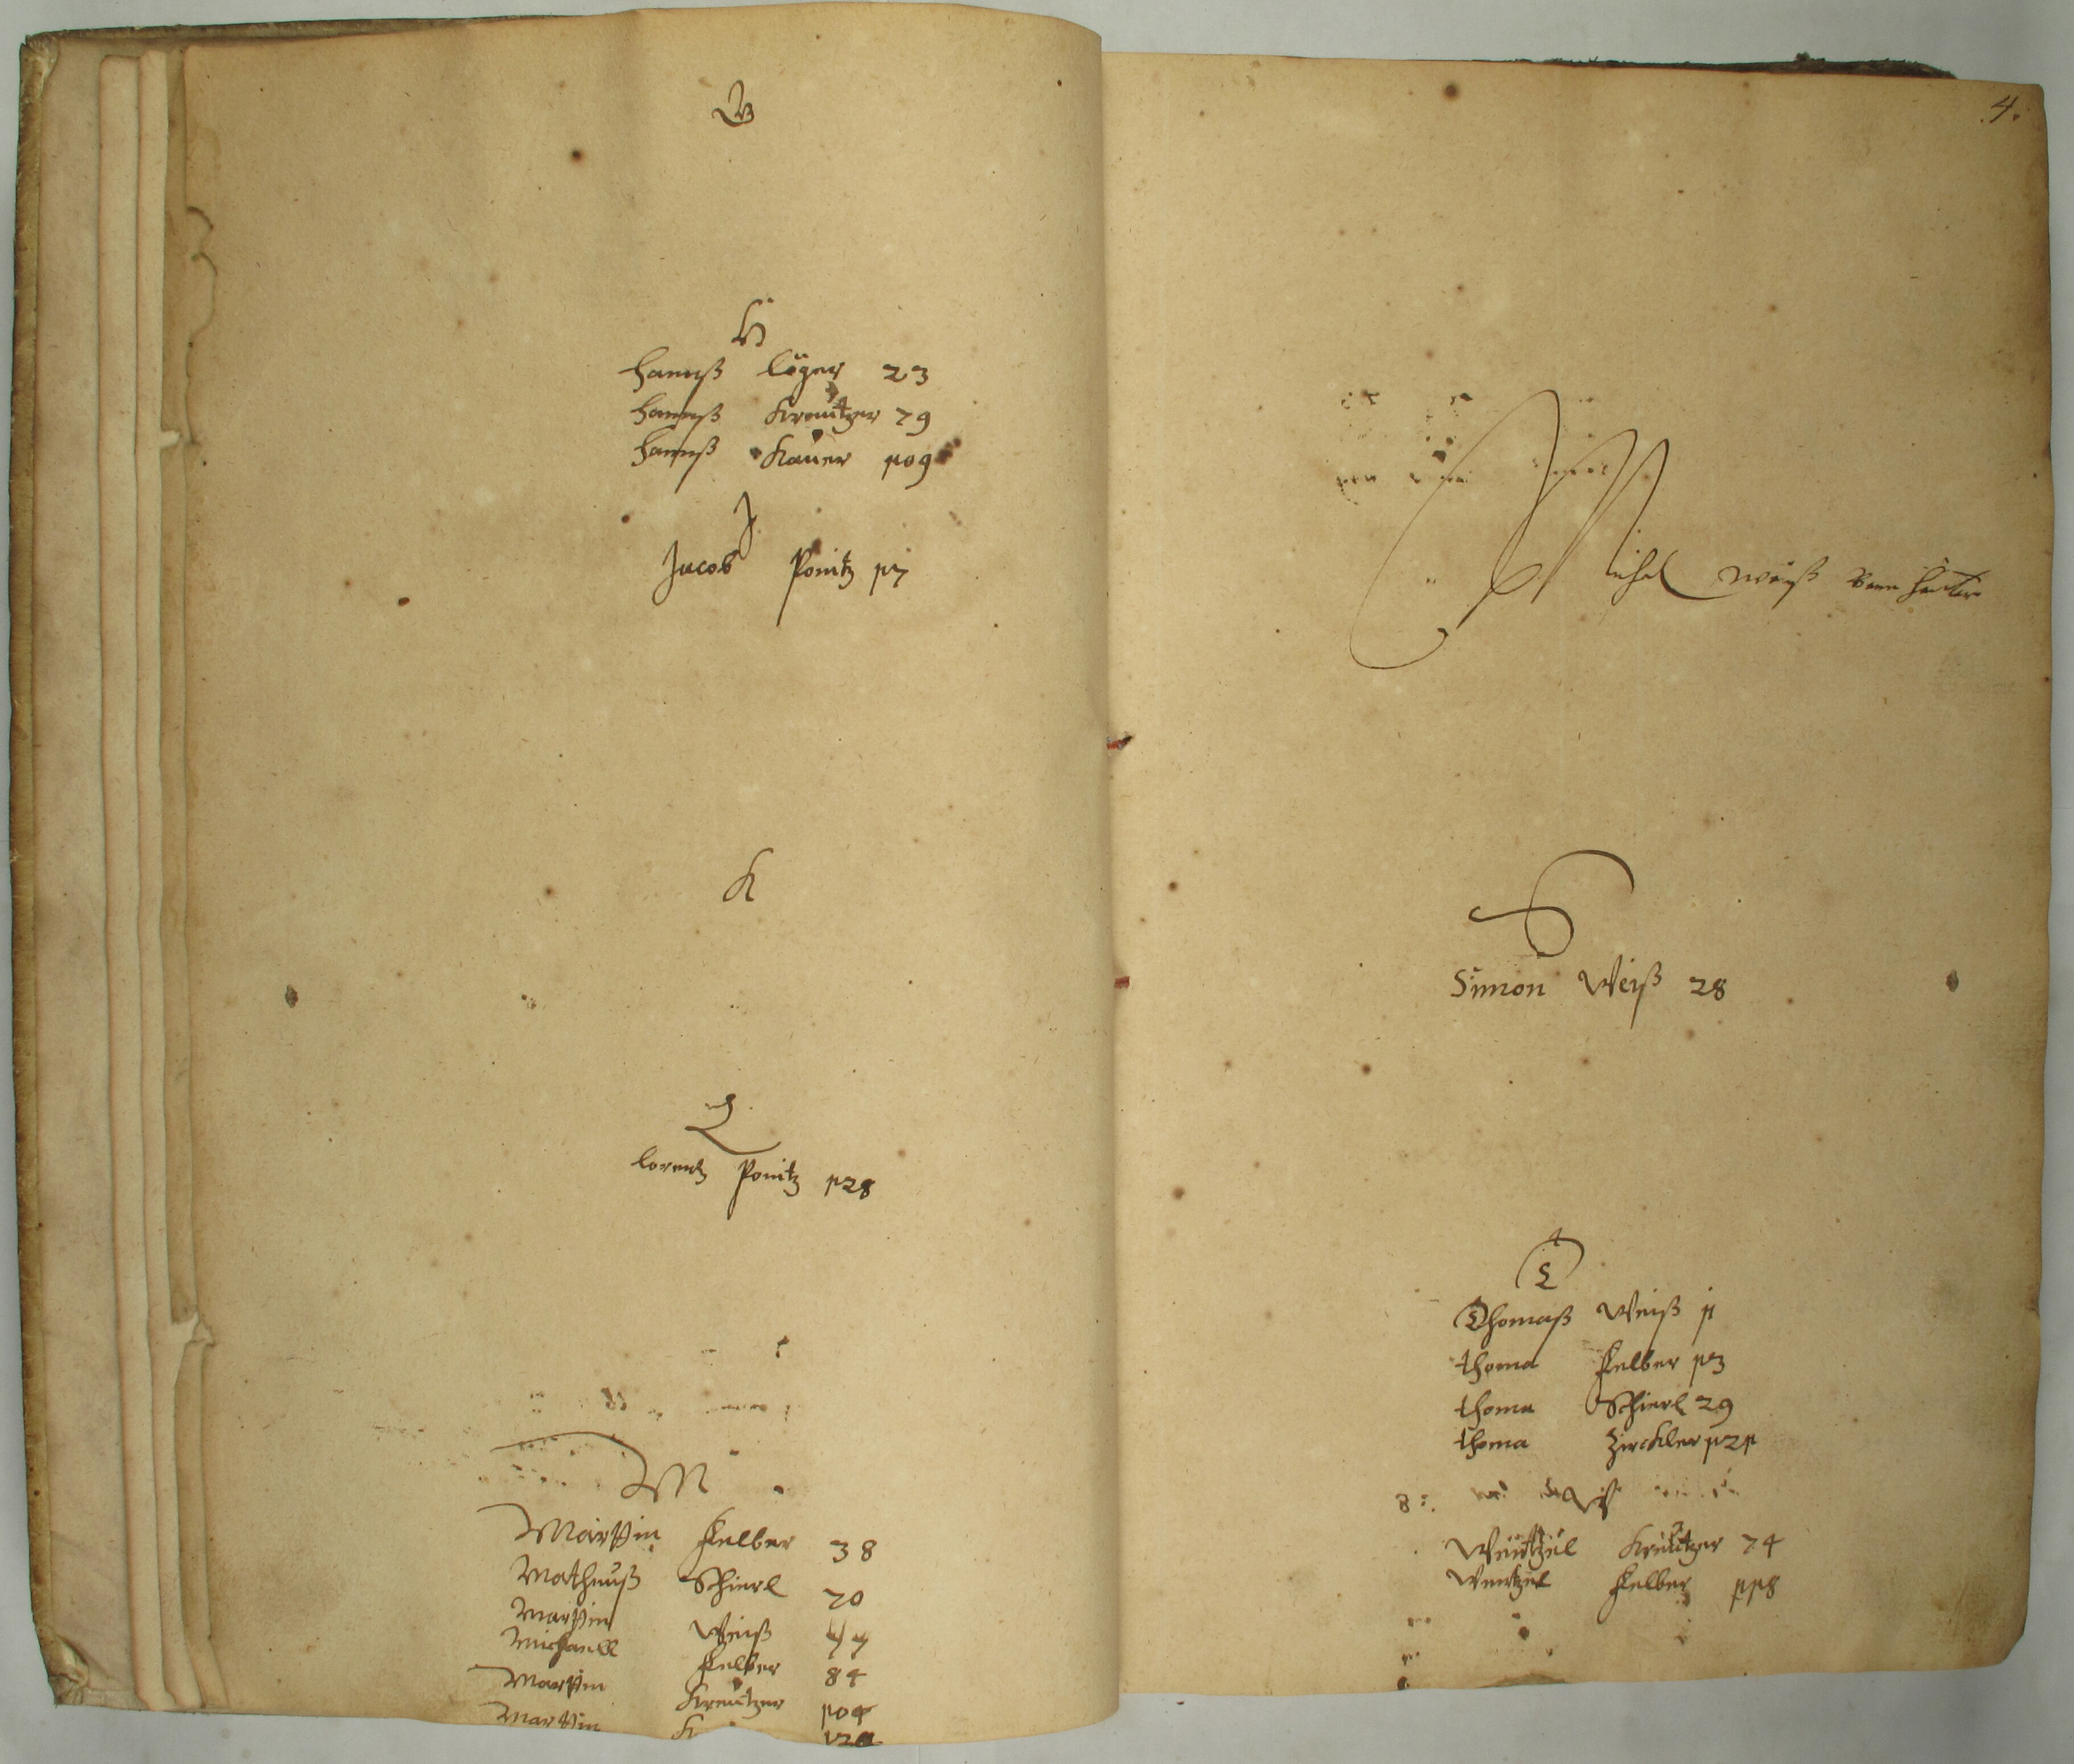 G
H
Hannß Löger 23
Hannß Kreützer 79
Hannß Kaŭer 109
J
Jacob Ponitz 17
K
L
Lorentz Ponitz 128
M
Martin Felber 38
Matheuß Schierl 70
Martin Weiß 77
Michaell Felber 84
Martin Kreützer 104
Martin K
4.
Michel Weiß
S
Simon Weiß 28
T
Thomaß Weiß 1
Thoma Felber 13
Thoma Schierl 29
Thoma Zirckler 121
W
Wentzel Kreützer 74
Wentzel Felber 118